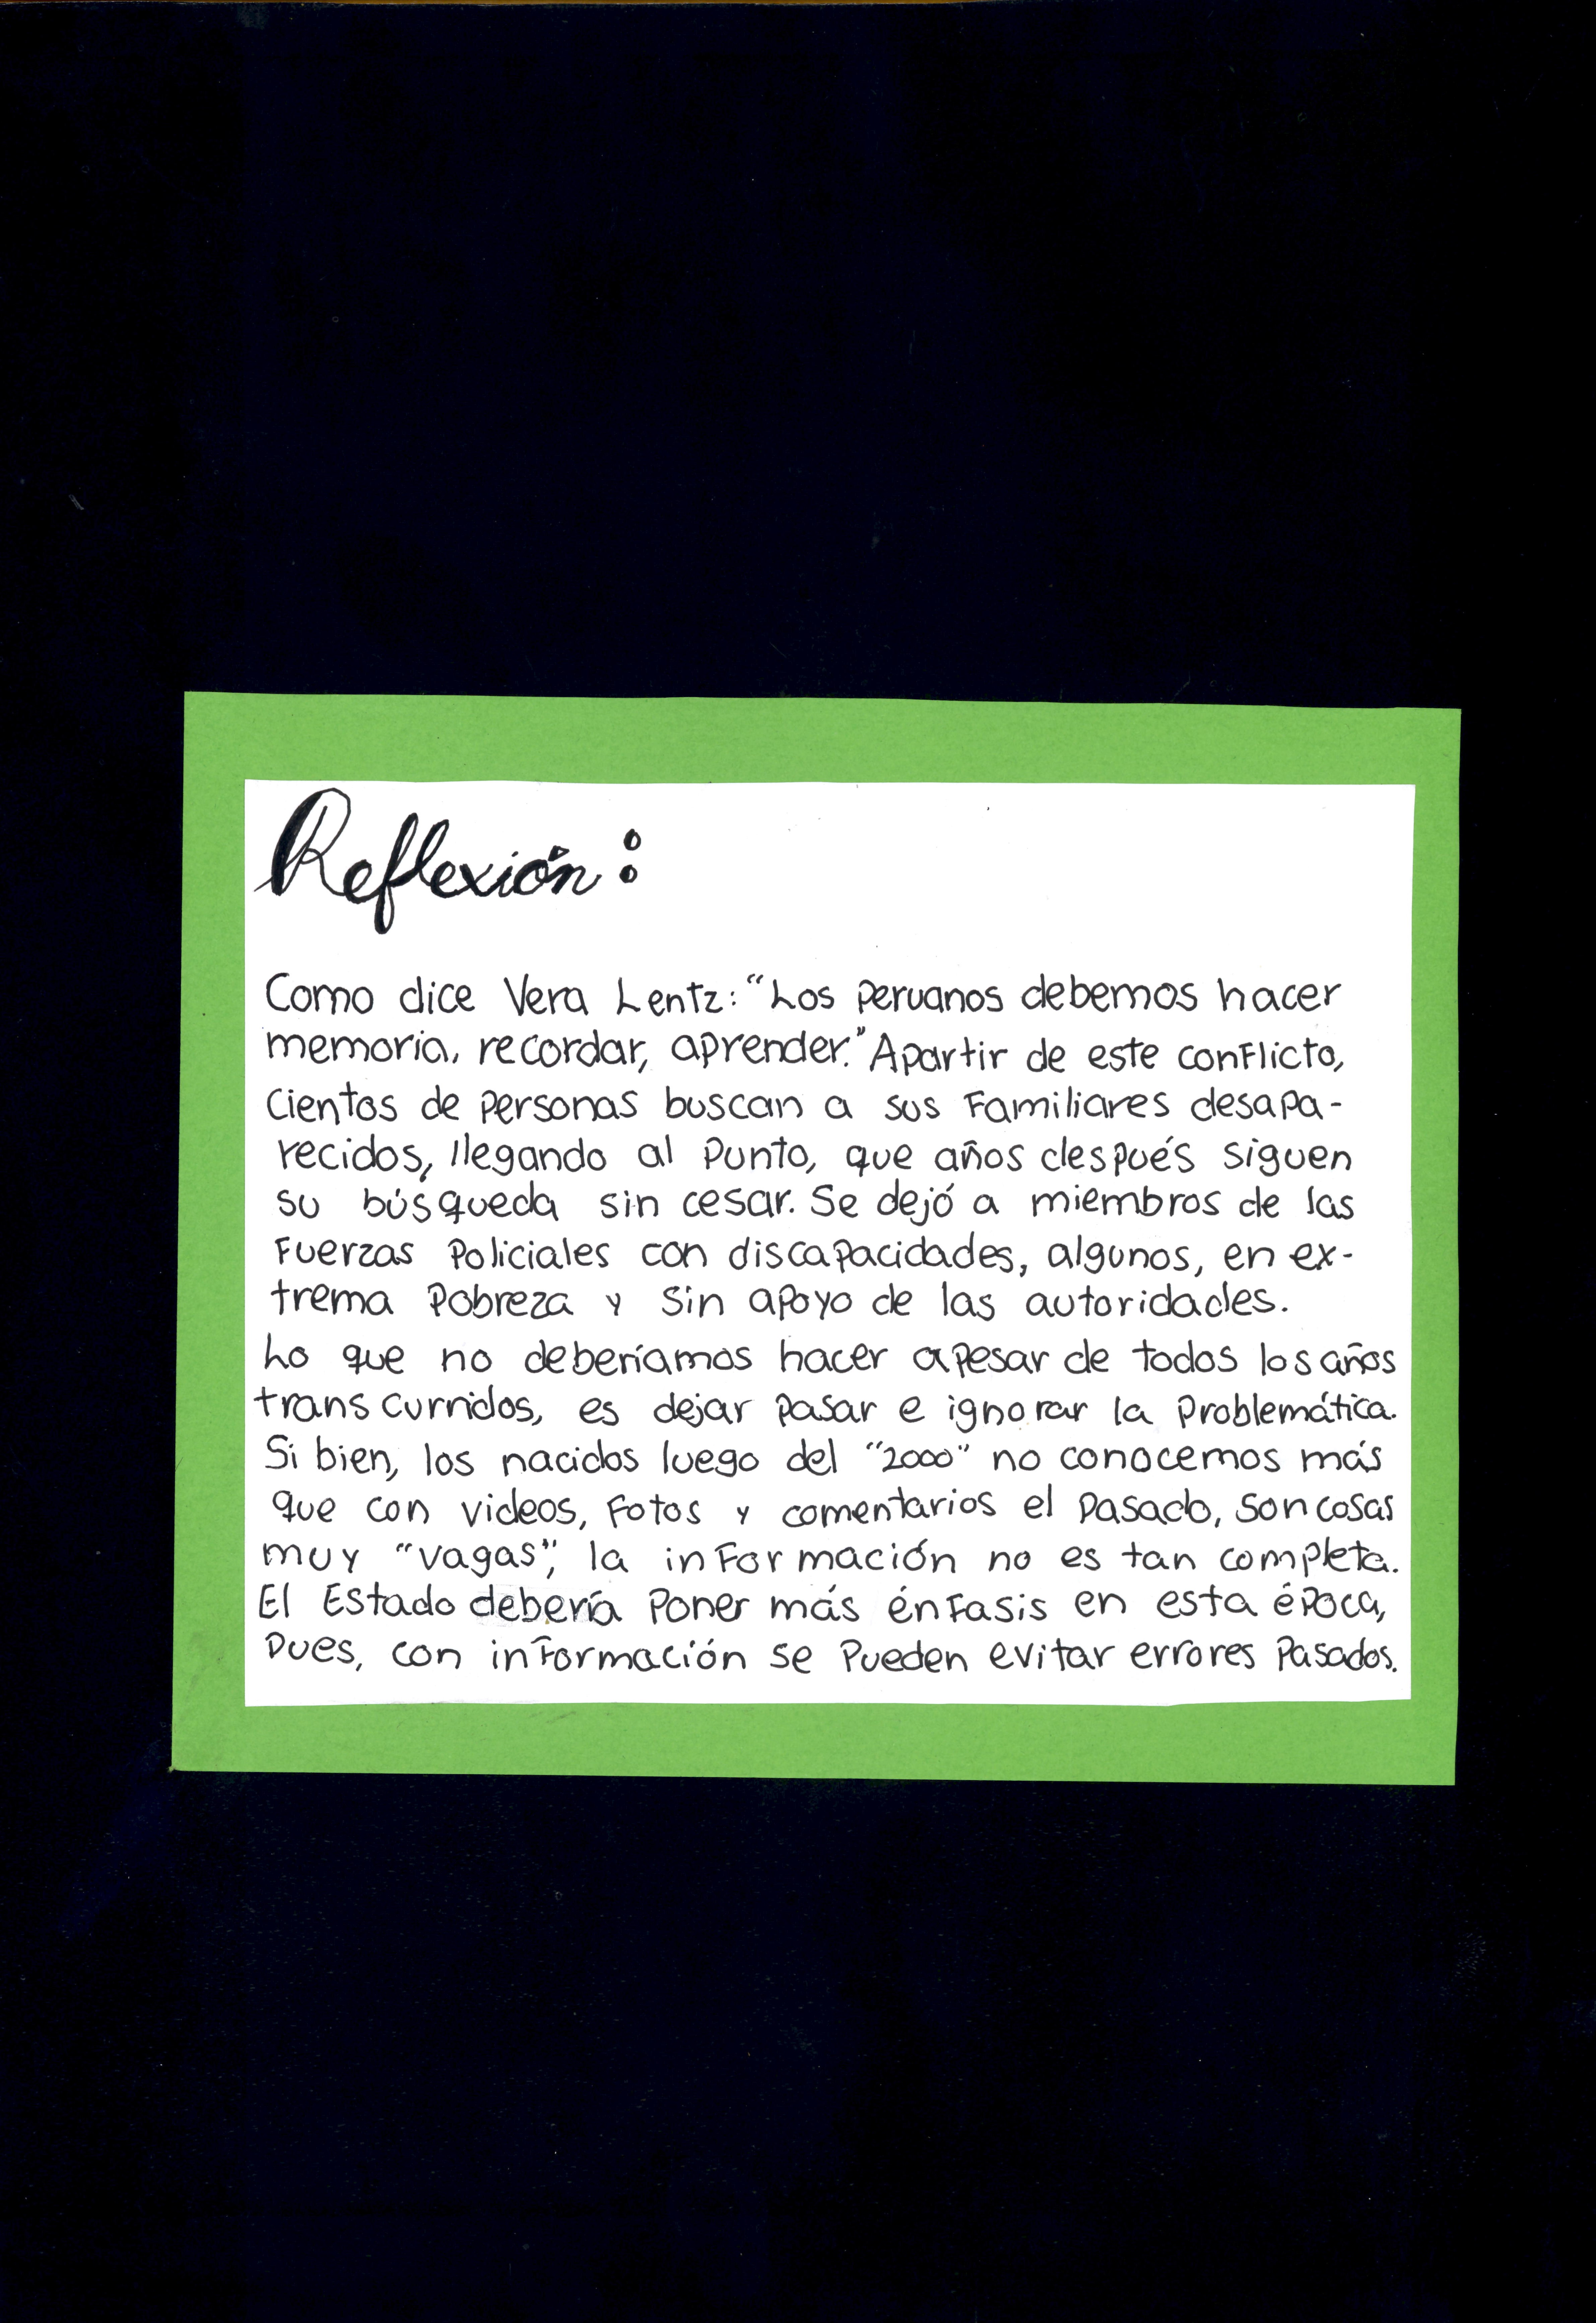 Reflexión:
Como dice Vera Lentz: "Los peruanos debemos hacer
memoria, recordar, aprender." Apartir de este conflicto,
cientos de personas buscan a sus familiares desapa-
recidos, llegando al punto, que años después siguen
su búsqueda sin cesar. Se dejó a miembros de las
fuerzas policiales con discapacidades, algunos, en ex-
trema pobreza y sin apoyo de las autoridades.
Lo que no deberíamos hacer apesar de todos los años
transcurridos, es dejar pasar e ignorar la problemática.
Si bien, los nacidos luego del "2000" no conocemos más
que con videos, fotos y comentarios el pasado, son cosas
muy "vagas", la información no es tan completa.
El Estado debería poner más énfasis en esta época,
pues, con información se pueden evitar errores pasados.